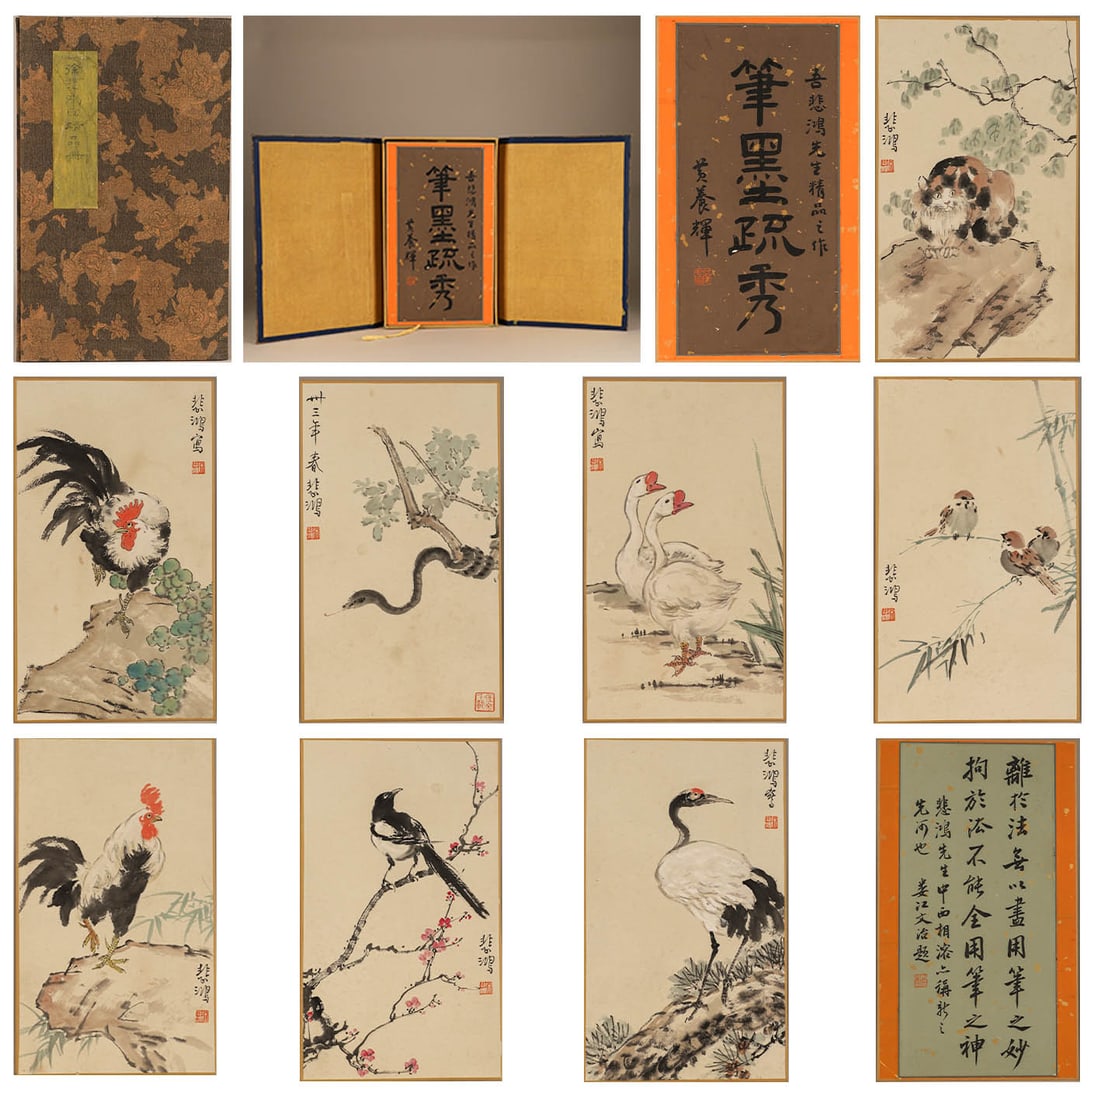 徐悲鴻精品冊
吾悲鴻先生精品之作
筆墨疏秀
黄養輝
吾悲鴻先生精品之作
筆墨疏秀
黄養輝
悲鴻
悲鴻寫
卅三年春悲鴻
悲鴻寫
悲鴻
悲鴻
悲鴻
悲鴻
離於法無以盡用筆之妙
拘於法不能全用筆之神
悲鴻先生中西相溶亦稱新之
先河也
婁江文治題